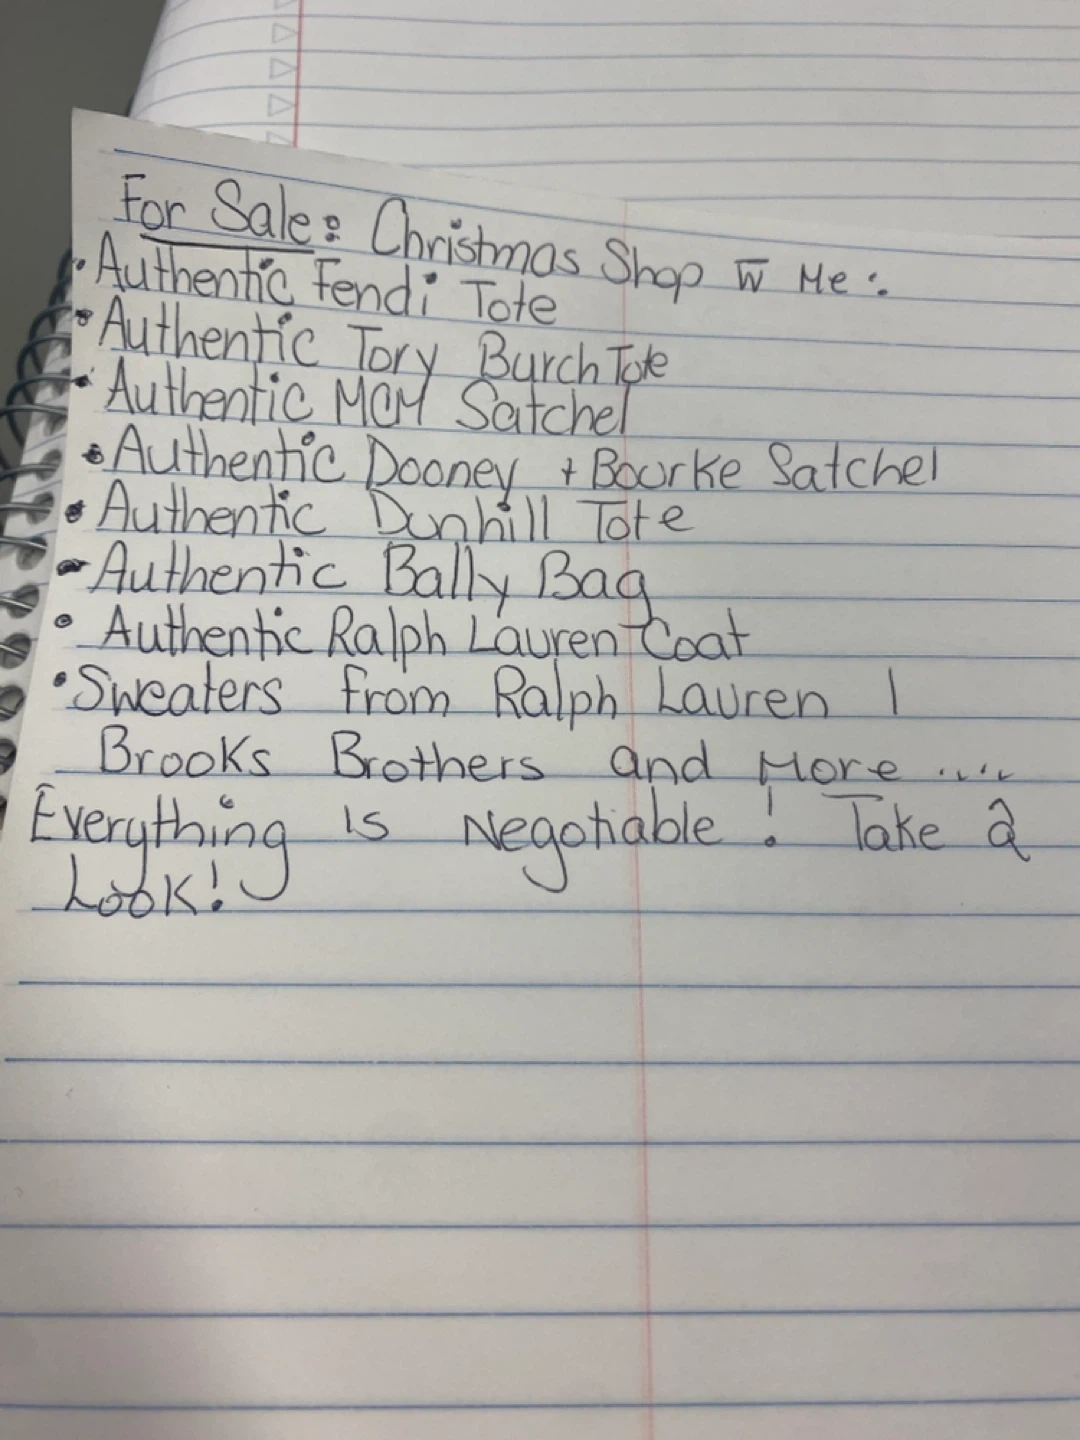 For Sale: Christmas Shop w Me:
• Authentic Fendi Tote
• Authentic Tory Burch Tote
• Authentic MCM Satchel
• Authentic Dooney + Bourke Satchel
• Authentic Dunhill Tote
• Authentic Bally Bag
• Authentic Ralph Lauren Coat
• Sweaters from Ralph Lauren |
Brooks Brothers and More ....
Everything is Negotiable! Take a
Look!